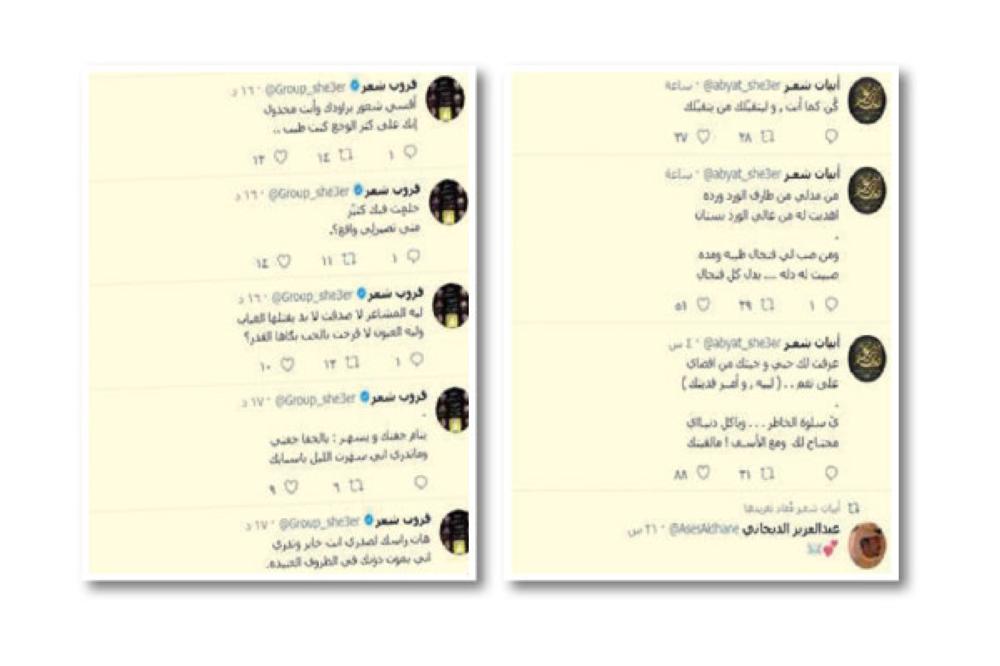 أبيات شعر @abyat_she3er · ساعة
كُن كما أنت , و ليتقبّلك من يتقبّلك
٢٨ ٣٧
أبيات شعر @abyat_she3er · ساعة
من مدلي من طارف الورد ورده
اهديت له من غالي الورد بستان
.
ومن صب لي فنجال طيبه ومده
صبيت له دله .... بدل كل فنجال
١ ٢٩ ٥١
أبيات شعر @abyat_she3er · ٤ س
عرفت لك حبي و جيتك من اقصاي
على نعم .. ( لبيه , و أمر فديتك )
.
يَ سلوة الخاطر . . . وياكل دنياي
محتاج لك ومع الأسف ! مالقيتك
٣١ ٨٨
أبيات شعر أعاد تغريدها
عبدالعزيز الديحاني @AsesAldhane · ٢١ س
قروب شعر @Group_she3er · ١٦ د
أقسى شعور يراودك وأنت مخذول
إنك على كثر الوجع كنت طيب ..
١ ١٤ ١٣
قروب شعر @Group_she3er · ١٦ د
حلمت فيك كثير
متى تصيرلي واقع؟.
١ ١١ ١٤
قروب شعر @Group_she3er · ١٦ د
ليه المشاعر لا صدقت لا بد يقتلها الغياب
وليه العيون لا فرحت بالحب بكاها القدر؟
١ ١٣ ١٠
قروب شعر @Group_she3er · ١٧ د
.
ينام جفنك و يسهر : بالجفا جفني
وماتدري اني سهرت الليل باسبابك
٦ ٩
قروب شعر @Group_she3er · ١٧ د
هات راسك لصدري انت خابر وتدري
اني بموت دونك في الظروف العنيده.